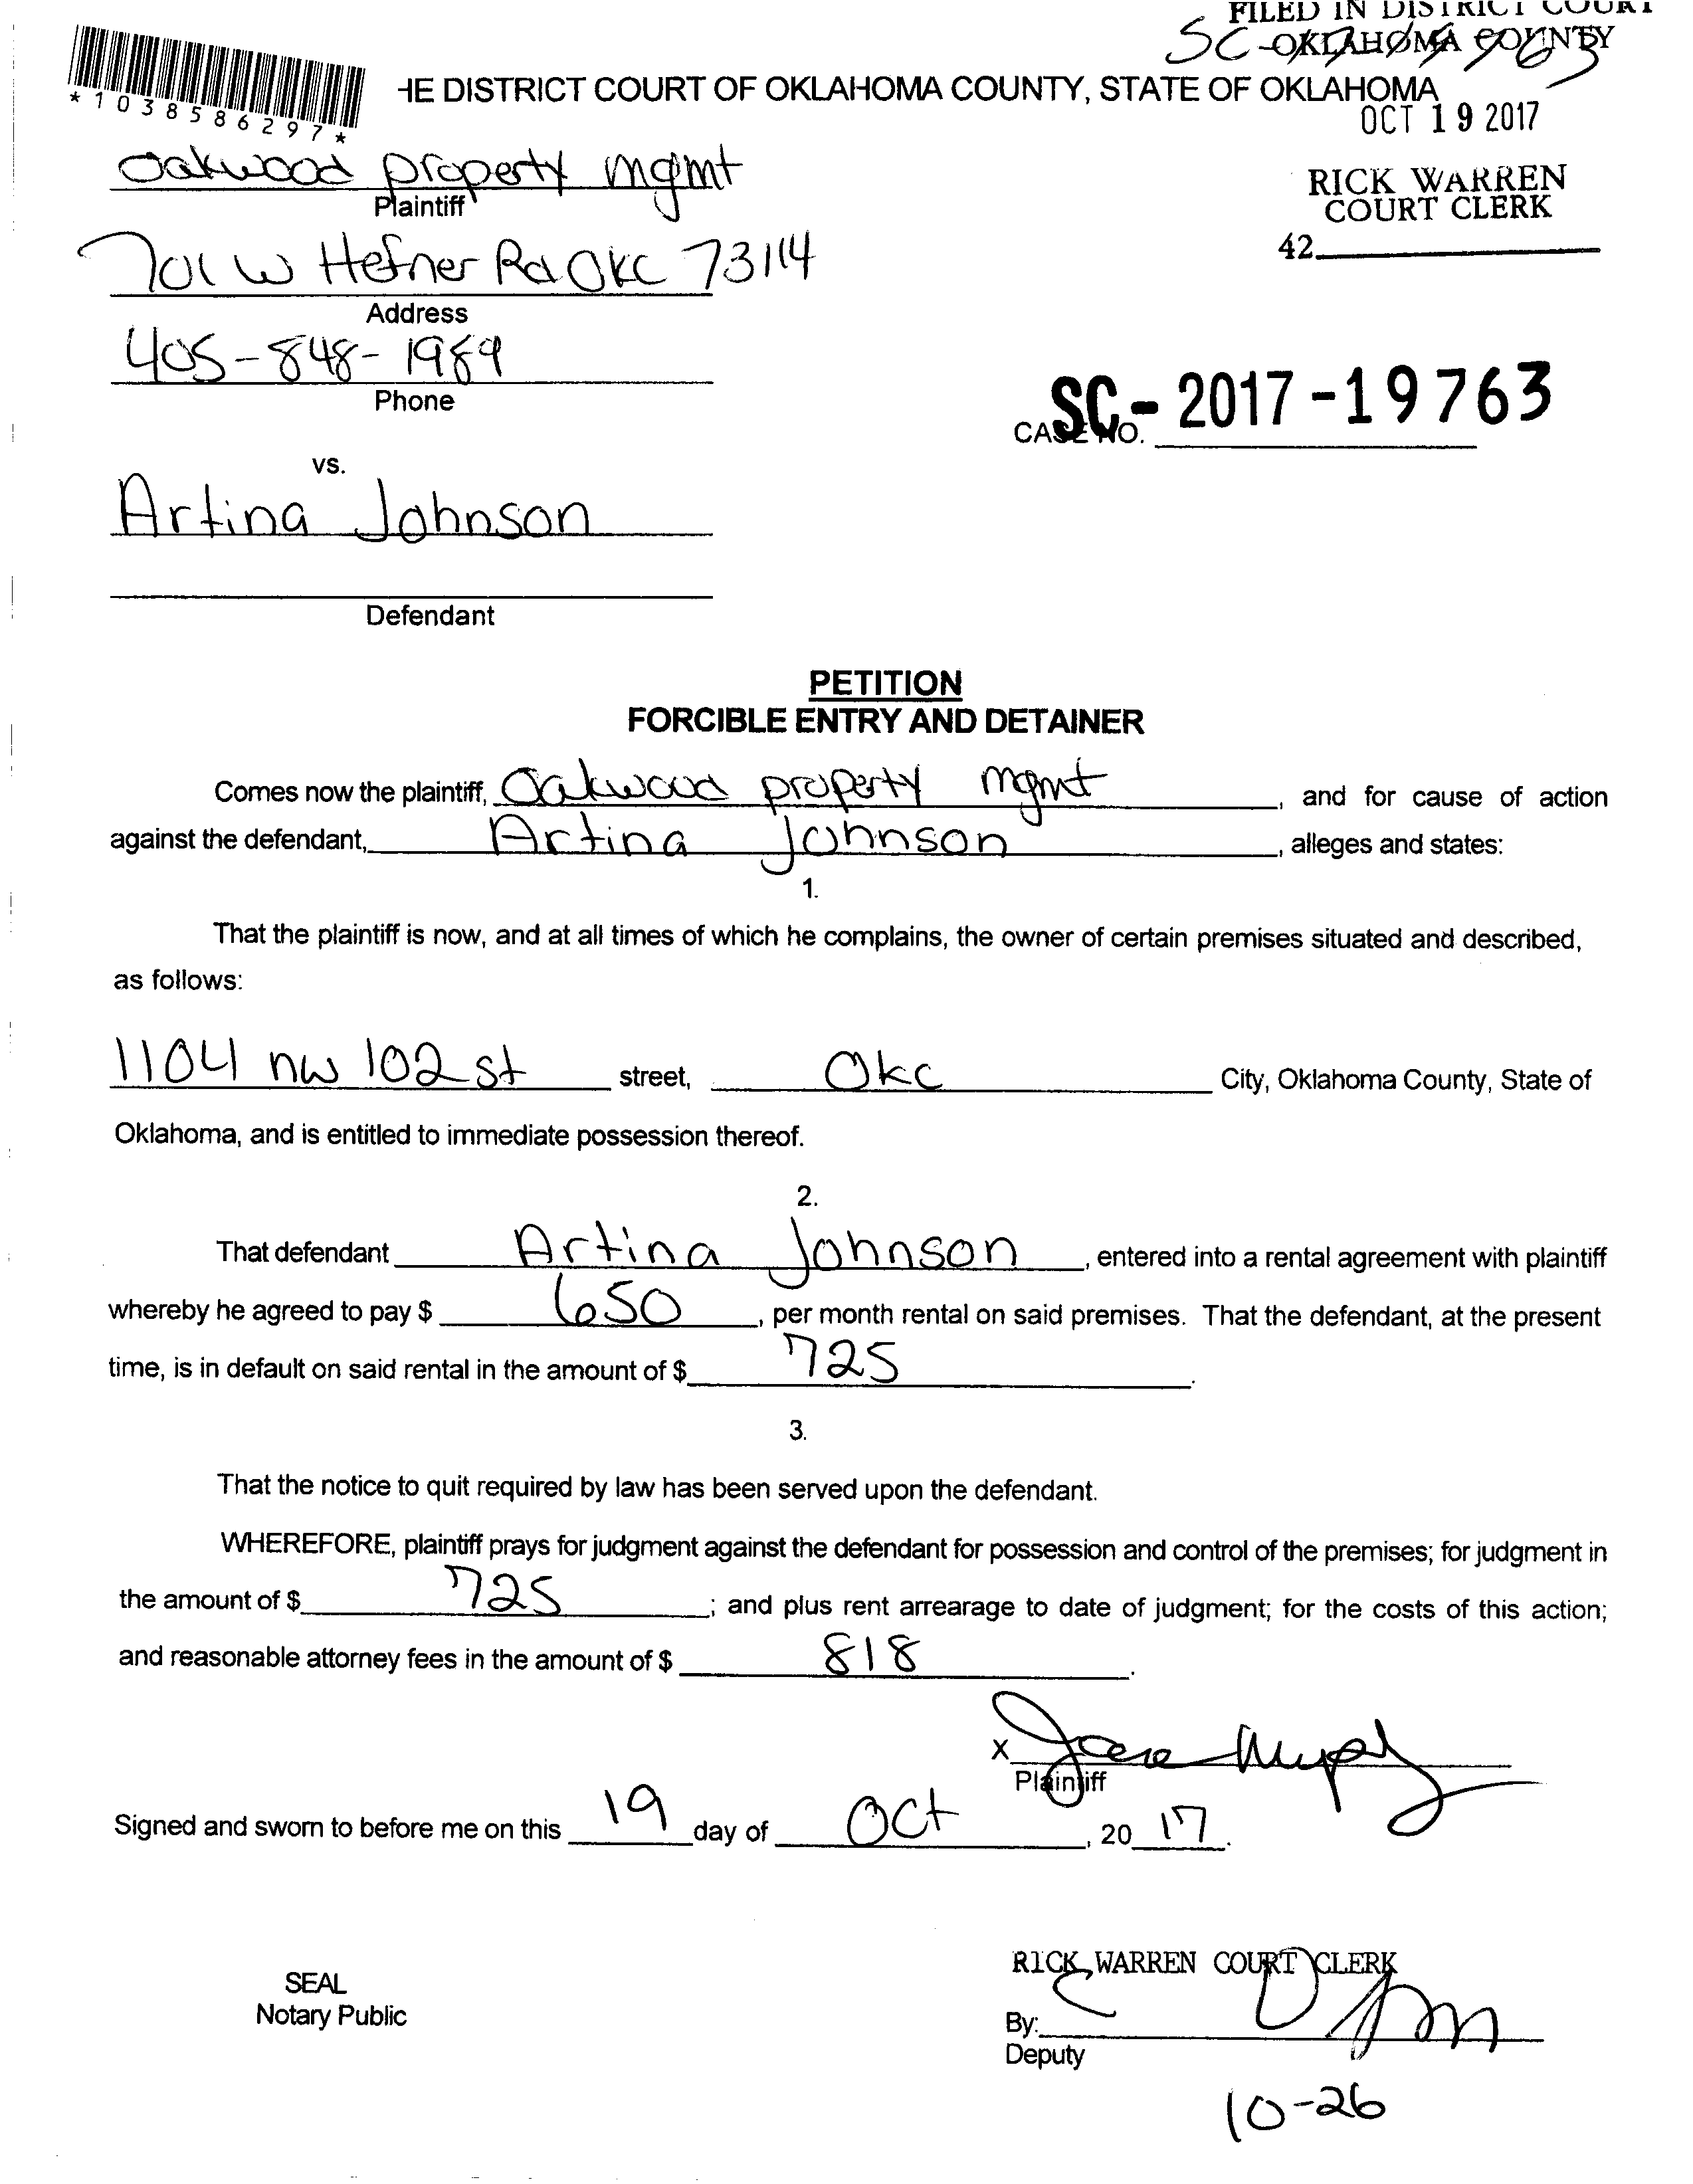 FILED IN DISTRICT COURT
OKLAHOMA COUNTY
SC-17-19763
HE DISTRICT COURT OF OKLAHOMA COUNTY, STATE OF OKLAHOMA
*1038586297*
OCT 19 2017
Oakwood property mgmt
Plaintiff
RICK WARREN
COURT CLERK
42
701 W Hefner Rd Okc 73114
Address
405-848-1989
Phone
CASE NO. SC-2017-19763
vs.
Artina Johnson
Defendant
PETITION
FORCIBLE ENTRY AND DETAINER
Comes now the plaintiff, Oakwood property mgmt, and for cause of action
against the defendant, Artina Johnson, alleges and states:
1.
That the plaintiff is now, and at all times of which he complains, the owner of certain premises situated and described,
as follows:
1104 nw 102 st street, Okc City, Oklahoma County, State of
Oklahoma, and is entitled to immediate possession thereof.
2.
That defendant Artina Johnson, entered into a rental agreement with plaintiff
whereby he agreed to pay $ 650, per month rental on said premises. That the defendant, at the present
time, is in default on said rental in the amount of $ 725.
3.
That the notice to quit required by law has been served upon the defendant.
WHEREFORE, plaintiff prays for judgment against the defendant for possession and control of the premises; for judgment in
the amount of $ 725; and plus rent arrearage to date of judgment; for the costs of this action;
and reasonable attorney fees in the amount of $ 818.
X
Plaintiff
Signed and sworn to before me on this 19 day of Oct, 20 17.
RICK WARREN COURT CLERK
SEAL
Notary Public
By:
Deputy
10-26